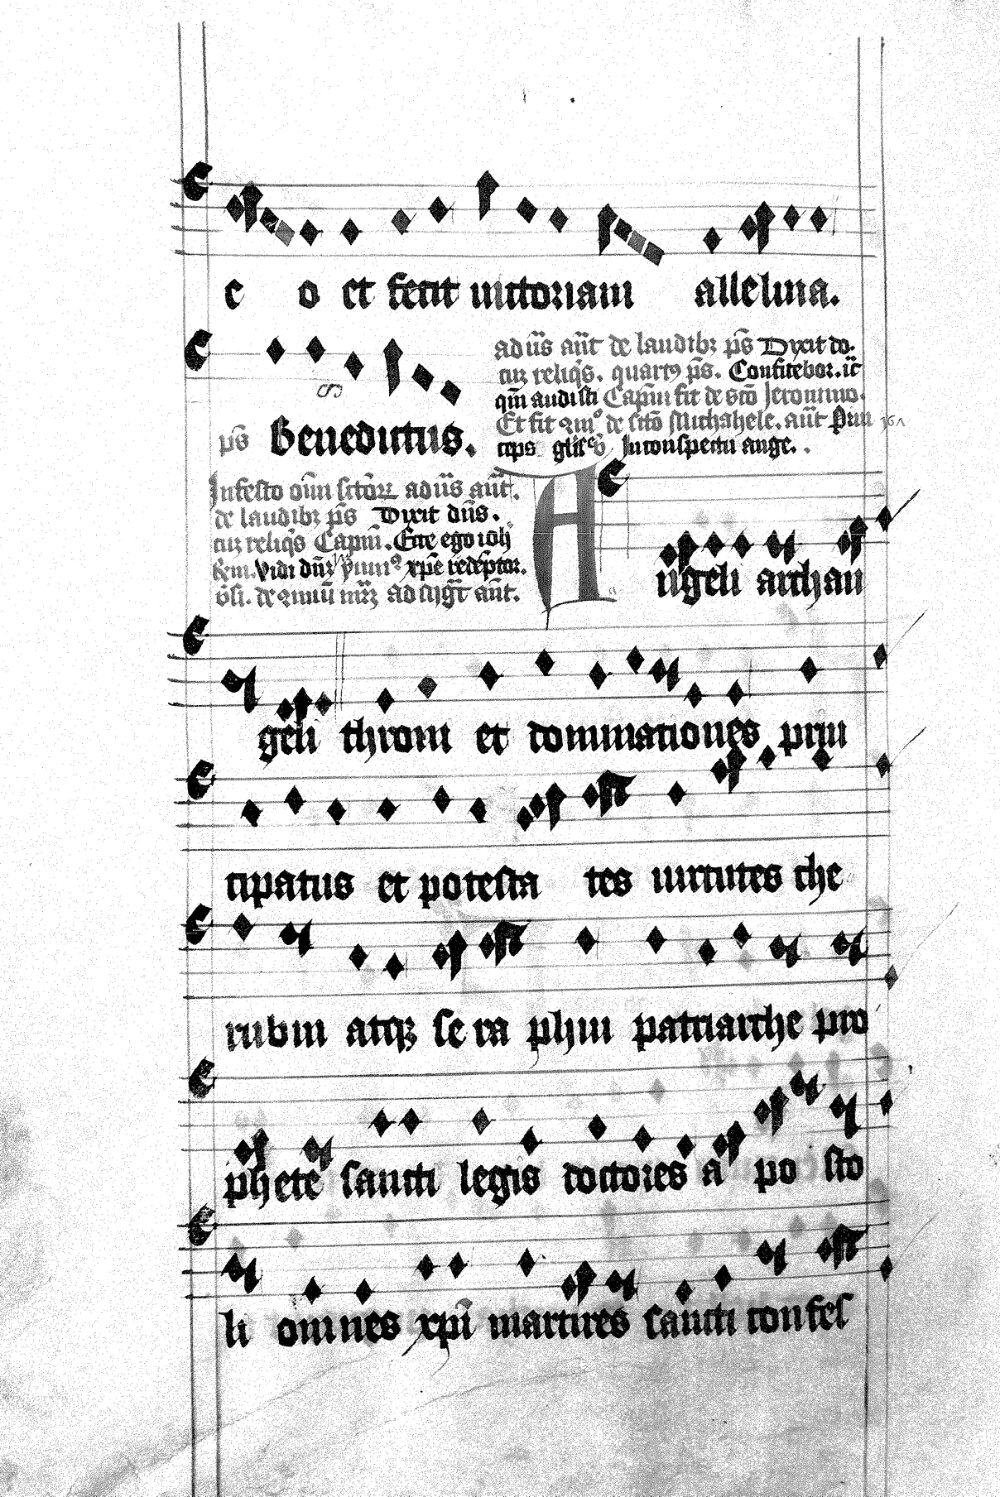 e o et fecit uictoriam alleluia.
ad uās añt de laudibꝫ pͫs Dixit do-
cuꝫ reliqͥs. quartꝰ pͫs. Confitebor. ic
qm̄ audisti Capm̄ fit de sc̄o Jeronimo.
Et fit de sc̄o Michahele. añt Prin
ps Benedictus.
ceps Inconspectu ange.
Infesto oīm sc̄oꝝ ad uās añt.
de laudibꝫ pͫs Dixit dn̄s.
cuꝫ reliqͥs Capm̄. Ecce ego ioh
Vidi xpē redēptor.
ad mḡt añt.
Angeli archan
geli throni et dominationes prin
cipatus et potesta tes uirtutes che
rubin atqꝫ se ra phin patriarche pro
phete sancti legis doctores a po sto
li omnes xpī martires sancti confes